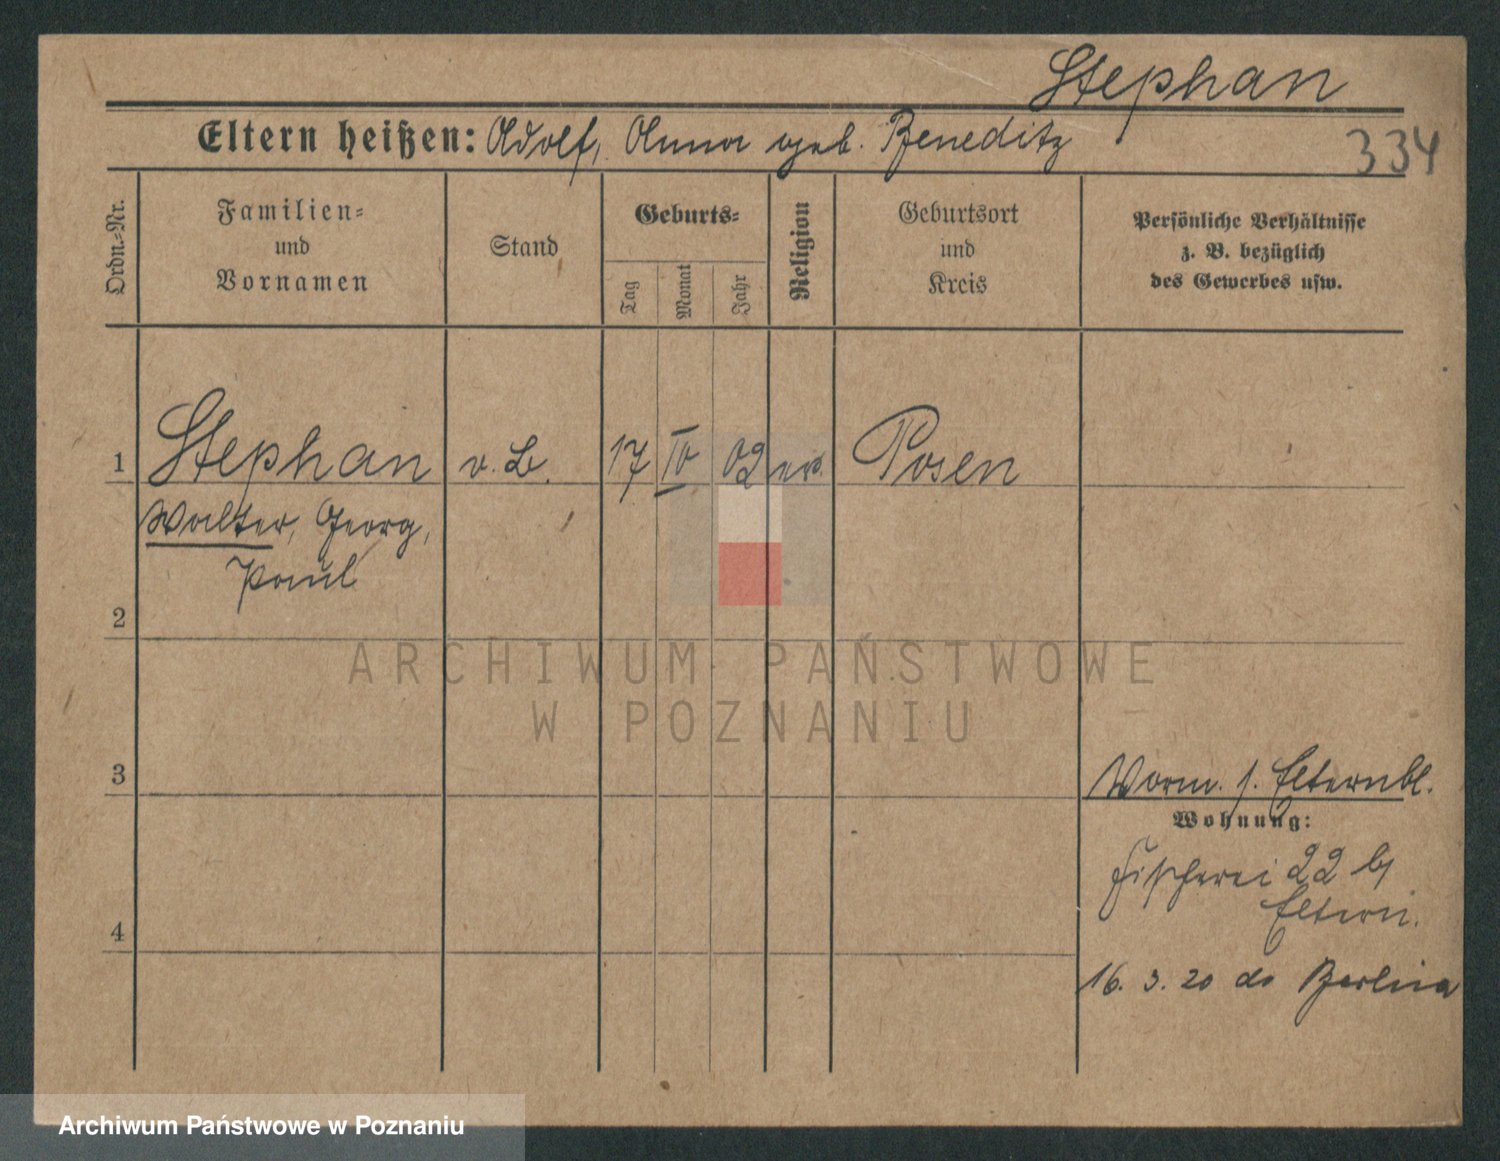 Stephan
Eltern heißen: Adolf, Anna geb. Beneditz
334
Ordn.-Nr.
Familien-
und
Vornamen
Stand
Geburts-
Tag
Monat
Jahr
Religion
Geburtsort
und
Kreis
Persönliche Verhältnisse
z. B. bezüglich
des Gewerbes usw.
1 Stephan v. B. 17 IV 02 ev. Posen
Walter, Georg,
Paul
2
ARCHIWUM PAŃSTWOWE
W POZNANIU
3
Vorm. s. Elternbl.
Wohnung:
Fischerei 22 b/
Eltern.
4
16. 3. 20 do Berlina
Archiwum Państwowe w Poznaniu